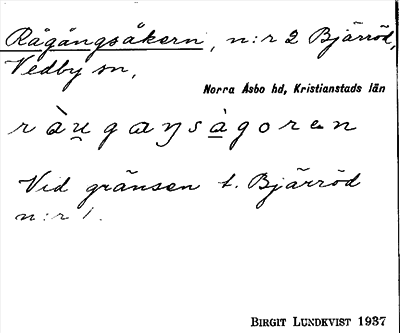 Rågångsåkern, n:r 2 Bjärröd,
Vedby sn,
Norra Åsbo hd, Kristianstads län
ràu̯gaŋsàgoren
Vid gränsen t. Bjärröd
n:r 1.
BIRGIT LUNDKVIST 1937